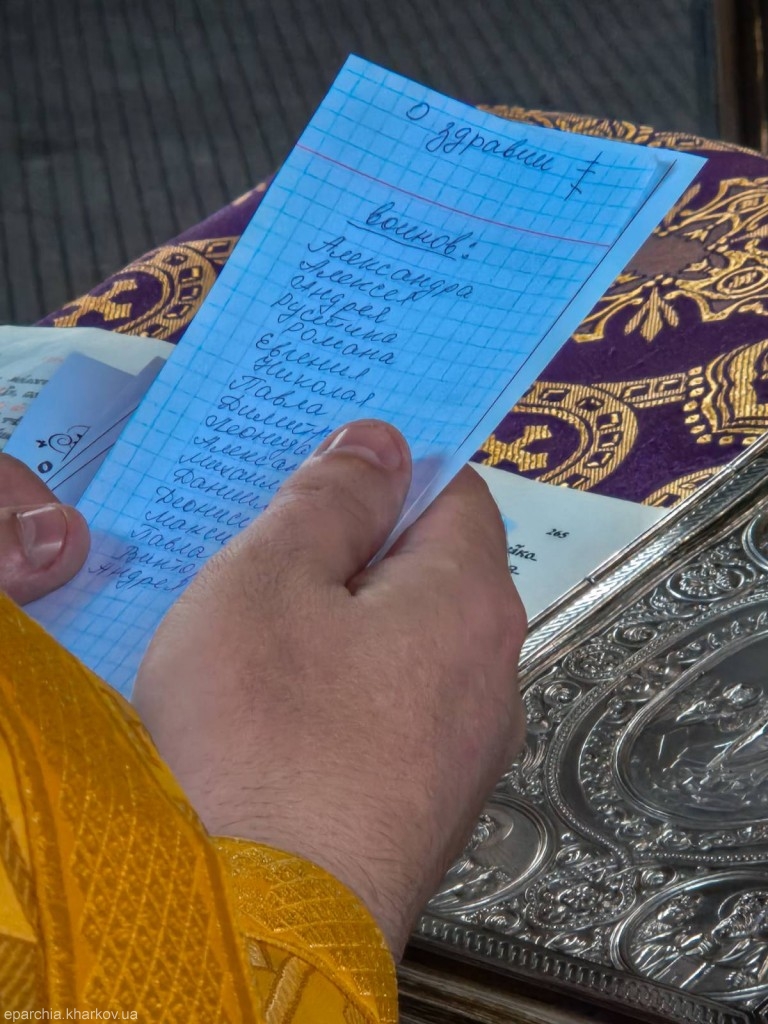 О здравии
воинов:
Александра
Алексея
Андрея
Руслана
Романа
Евгения
Николая
Павла
Димит
Леонида
Алексан
Михаил
Дании
Дионис
Макси
Павла
Викто
Андрея
265
eparchia.kharkov.ua